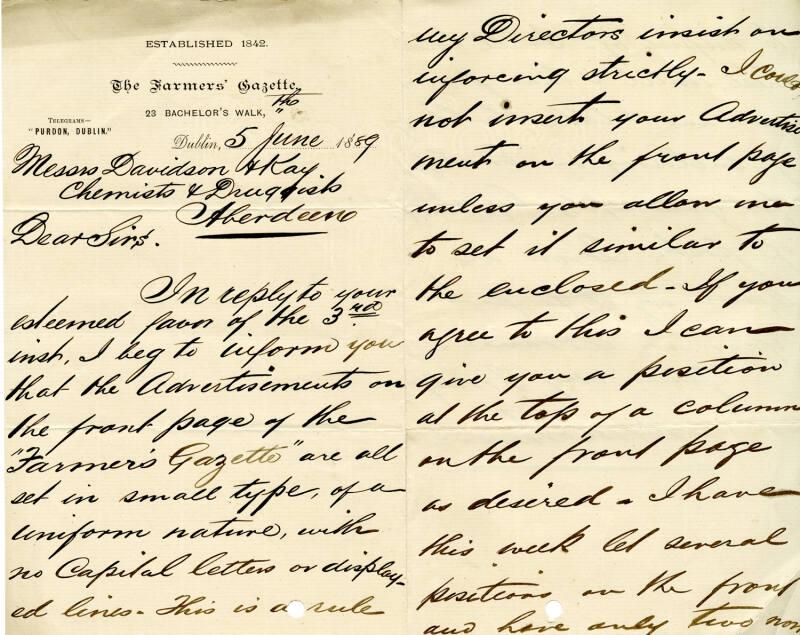 ESTABLISHED 1842.
The Farmers' Gazette,
23 BACHELOR'S WALK,
TELEGRAMS—
"PURDON, DUBLIN."
Dublin, 5th June 1889
Messrs Davidson & Kay
Chemists & Druggists
Aberdeen
Dear Sirs.
In reply to your
esteemed favor of the 3rd
inst, I beg to inform you
that the Advertisements on
the front page of the
"Farmer's Gazette" are all
set in small type, of a
uniform nature, with
no Capital letters or display-
ed lines - This is a rule
my Directors insist on
inforcing strictly - I could
not insert your Advertise
ment on the front page
unless you allow me
to set it similar to
the enclosed - If you
agree to this I can
give you a position
at the top of a column
on the front page
as desired - I have
this week let several
positions on the front
and have only two now